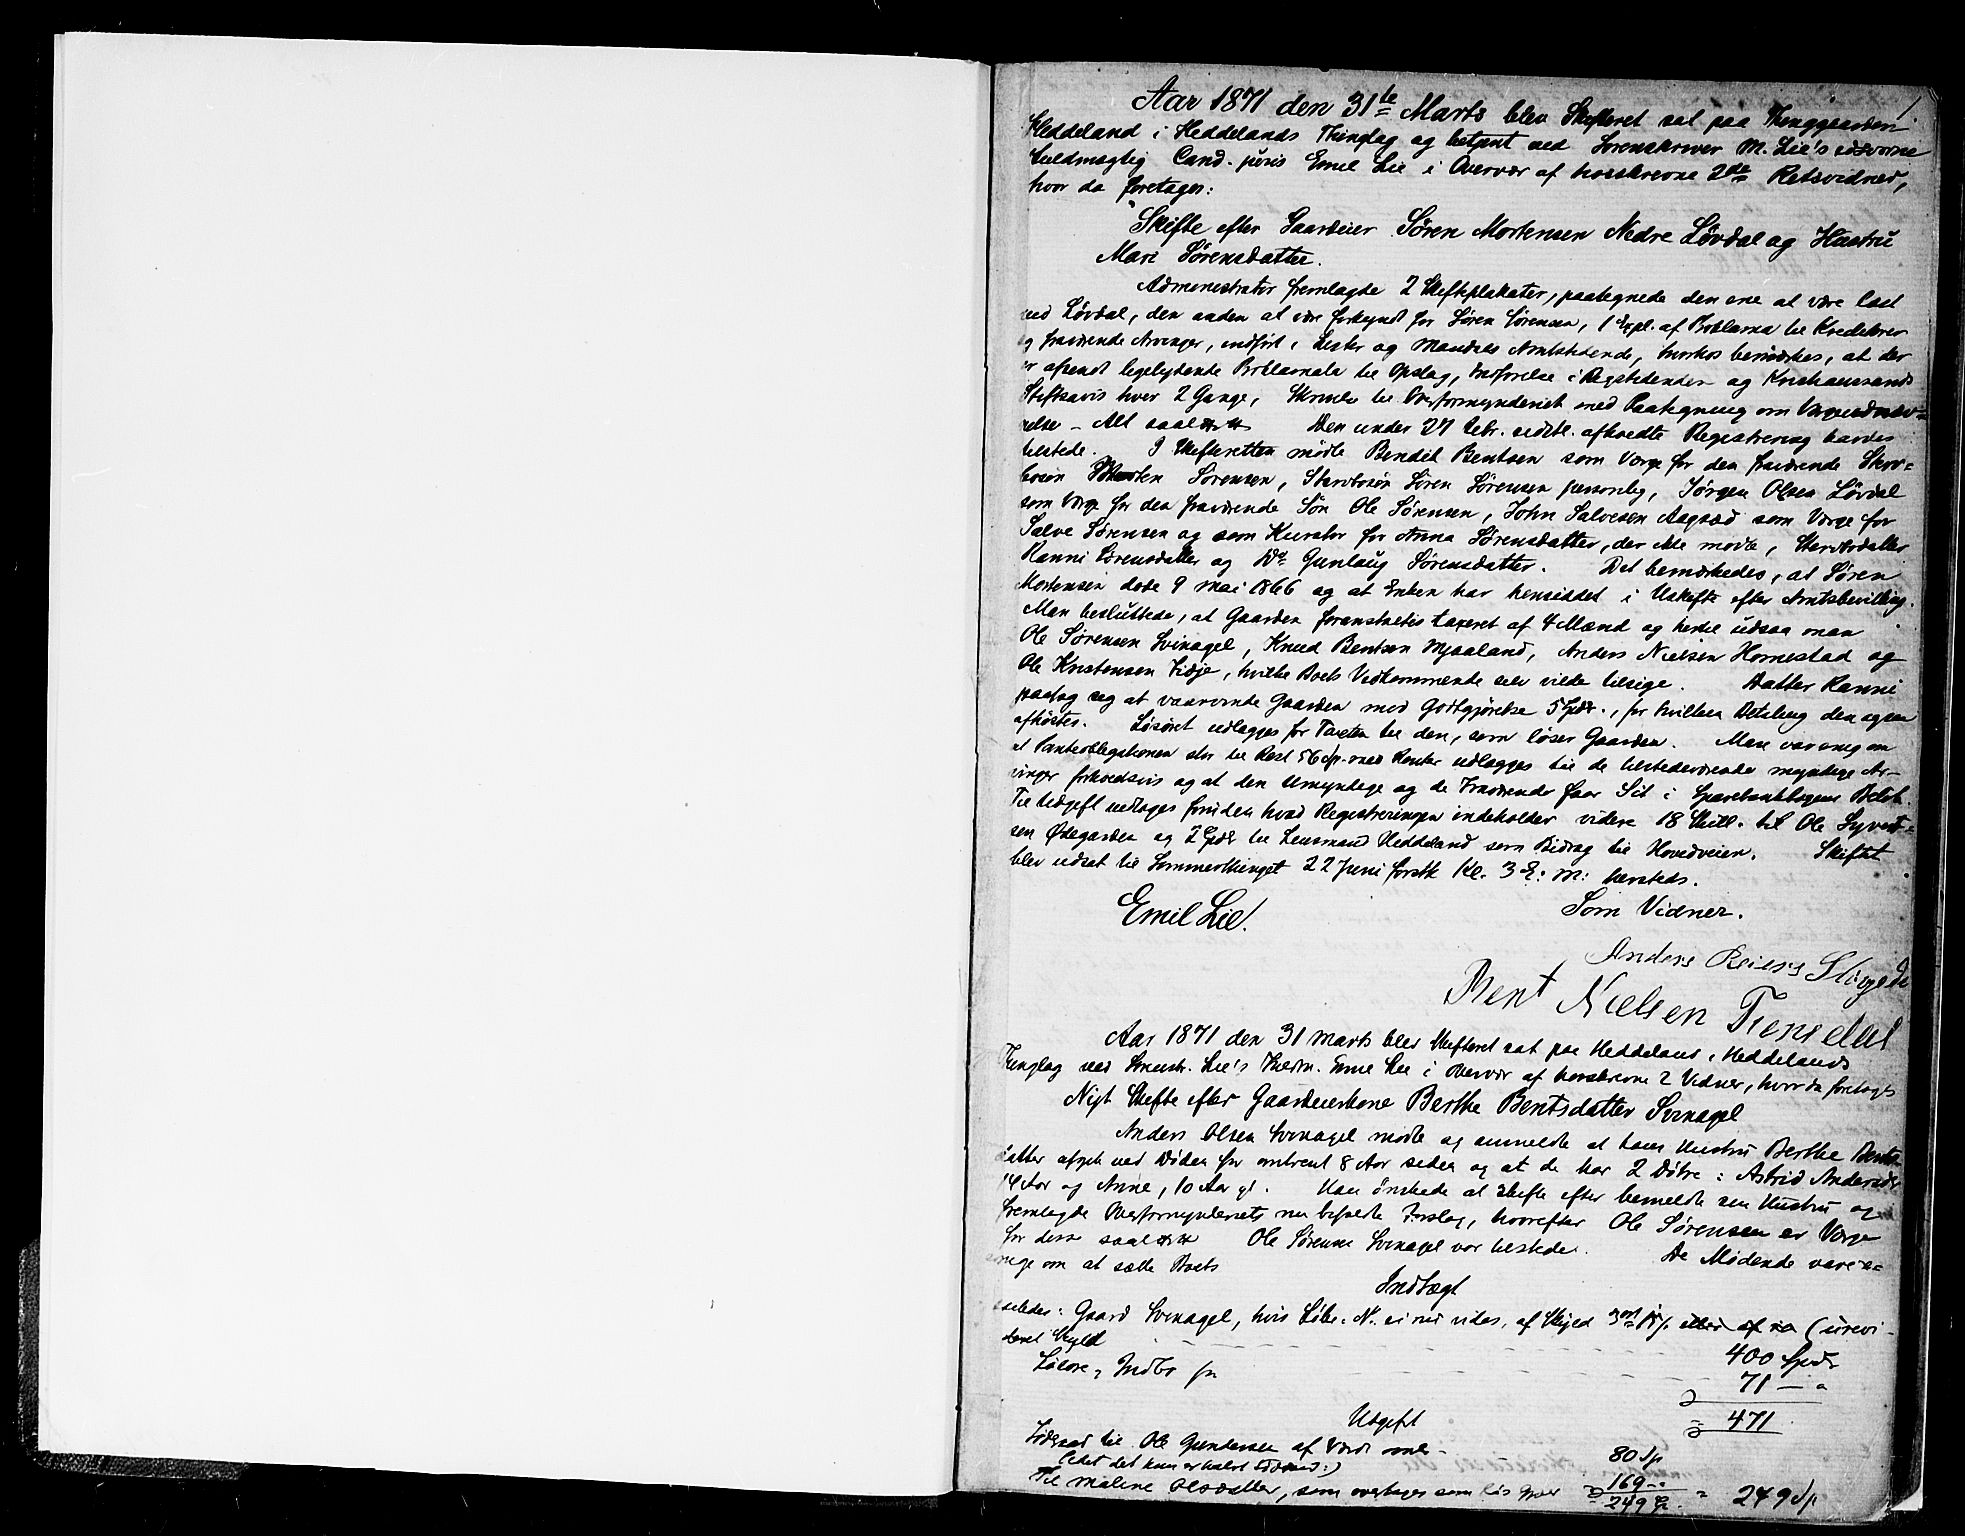 1
Aar 1871 den 31te Marts blev Skifteret sat paa Thinggaarden
Heddeland i Heddelands Thinglag og betjent ved Sorenskriver M. Lie's edsvorne
Fuldmægtig Cand. juris Emil Lie i Overvær af hosskrevne 2de Retsvidner,
hvor da foretages:
Skifte efter Gaardeier Søren Mortensen Nedre Løvdal og Hustru
Mari Sørensdatter.
Administrator fremlagde 2 Skifteplakater, paategnede den ene at være læst
ved Løvdal, den anden at være forkyndt for Søren Sørensen, 1 Expl. af Proklama til Kreditorer
og fraværende Arvinger, indført i Lister og Mandals Amtstidende, hvorhos bemærkes, at der
er afsendt ligelydende Proklamata til Opslag, Indførelse i Rigstidenden og Kristianssands
Stiftsavis hver 2 Gange, Skrivelse til Overformynderiet med Paategning om Værgeudnæv-
nelse – Alt saal. Den under 27 Febr. sidstl. afholdte Registrering havdes
tilstede. I Skifteretten mødte Bendik Bentsen som Værge for den fraværende Sterv-
bosøn Morten Sørensen, Stervbosøn Søren Sørensen personlig, Jørgen Olsen Løvdal
som Værge for den fraværende Søn Ole Sørensen, John Salvesen Aagsæd som Værge for
Salve Sørensen og som Kurator for Anna Sørensdatter, der ikke mødte, Stervbodatter
Ranni Sørensdatter og Do Gunlaug Sørensdatter. Det bemærkedes, at Søren
Mortensen døde 9 Mai 1866 og at Enken har hensiddet i Uskifte efter Amtsbevilling.
Man besluttede, at Gaarden foranstaltes taxeret af 4 Mænd og hertil udsaa man
Ole Sørensen Svinagel, Knud Bentsen Mjaaland, Anders Nielsen Homestad og
Ole Kristensen, hvilke Boets Vedkommende selv vilde tilsige. Datter Ranni
paatog sig at vaaronne Gaarden mod Godtgjørelse 5 Spdr., for hvilken Betaling den ogsaa
afhøstes. Løsøret udlægges for Taxten til den, som løser Gaarden. Man var enig om
at Panteobligationen stor til Rest 56 Sp. med Renter udlægges til de tilstedeværende myndige Ar-
vinger forholdsvis og at den Umyndige og de Fraværende faar Sit i Sparebankbogens Beløb.
Til Udgift vedtoges foruden hvad Registreringen indeholder videre 18 Skill. til Ole Syvert-
sen Ødegaarden og 2 Spdr til Lensmand Heddeland som Bidrag til Hovedveien. Skiftet
blev udsat til Sommerthinget 22 Juni førstk Kl. 3 E: M: hersteds.
Emil Lie. Som Vidner.
Anders Reiers
Bent Nielsen
Aar 1871 den 31 Marts blev Skifteret sat paa Heddeland i Heddelands
Thinglag ved Sorenskr. Lie's Fuldm. Emil Lie i Overvær af hosskrevne 2 Vidner, hvor da foretoges
Nyt Skifte efter Gaardeierkone Berthe Bentsdatter Svinagel
Anders Olsen Svinagel mødte og anmeldte at hans Hustru Berthe Bents-
datter afgik ved Døden for omtrent 8 Aar siden og at de har 2 Døtre: Astrid Andersdr
14 Aar og Anne, 10 Aar gl. Han ønskede at skifte efter bemeldte sin Hustru og
fremlagde Overformynderiets nu bifaldte Forslag, hvorefter Ole Sørensen er Værge
for disse saal. Ole Sørensen Svinagel var tilstede. De Mødende vare e-
nige om at sætte Boets
Indtægt
saaledes: Gaard Svinagel, hvis Løbe-N. ei nu vides, af Skyld (urevi-
deret Skyld 400 Spdr
Løsøre, Indbo for 71 – "
= 471
Udgift
Fødeaad til Ole Gundersen af Værdi 80 Sp
Til Maline Olsdatter, som overtages som løs Gjæld 169 – "
249 Sp. = 249 Sp